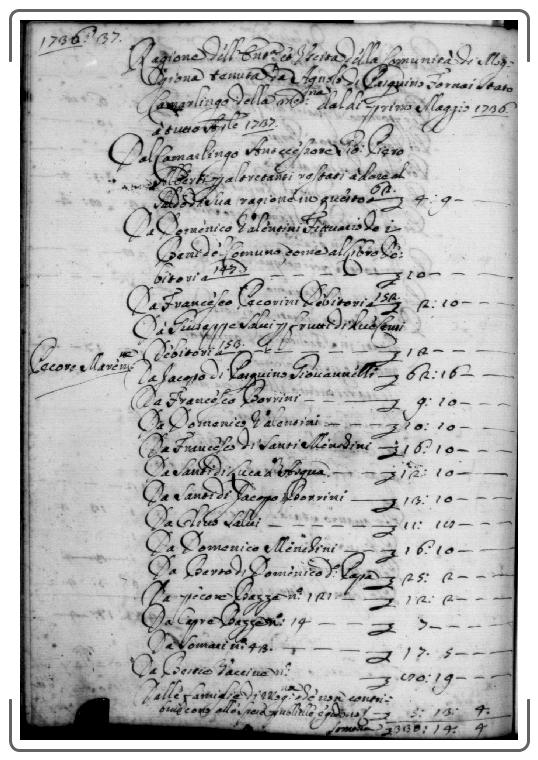 1736: 37.
Ragione dell' Ent.ta e Uscita della Comunità di
tenuta da Agnolo di Pasquino Fornai stato
Camarlingo della dal dì primo Maggio 1736
a tutto Aple 1737.
Dal Camarlingo Antecessore Gio: Piero
Alberti p altrettanti restati a dare al
Saldo di sua ragione in questo a 62 4: 9
Da Domenico Valentini Fittuario de i
Beni di Comuno come al libro De-
bitori a 147 10
Da Francesco Pecorini Debitori a 152 2: 10
Da Giuseppe Salvi p frutti di
Debitori a 153 12
Pecore Marem.ne
Da Jacopo di Pasquino Giovannelli 62: 16
Da Francesco Borrini 9: 10
Da Domenico Valentini 20: 10
Da Francesco di Santi Menchini 16: 10
Da Santi di Luca 12: 10
Da Santi di Jacopo Borrini 13: 10
Da Salvi 11: 10
Da Domenico Menchini 16: 10
Da Barto di Domenico d. Papa 25: 2
Da pecore Bazze n.o 121 12: 2
Da Capre Bazze n.o 14 7
Da Somari n.o 43. 17: 5
Da Bestie Vaccine n.o 70: 19
Dalle famiglie di che non contri-
5: 13: 4
Somma 338: 14: 4